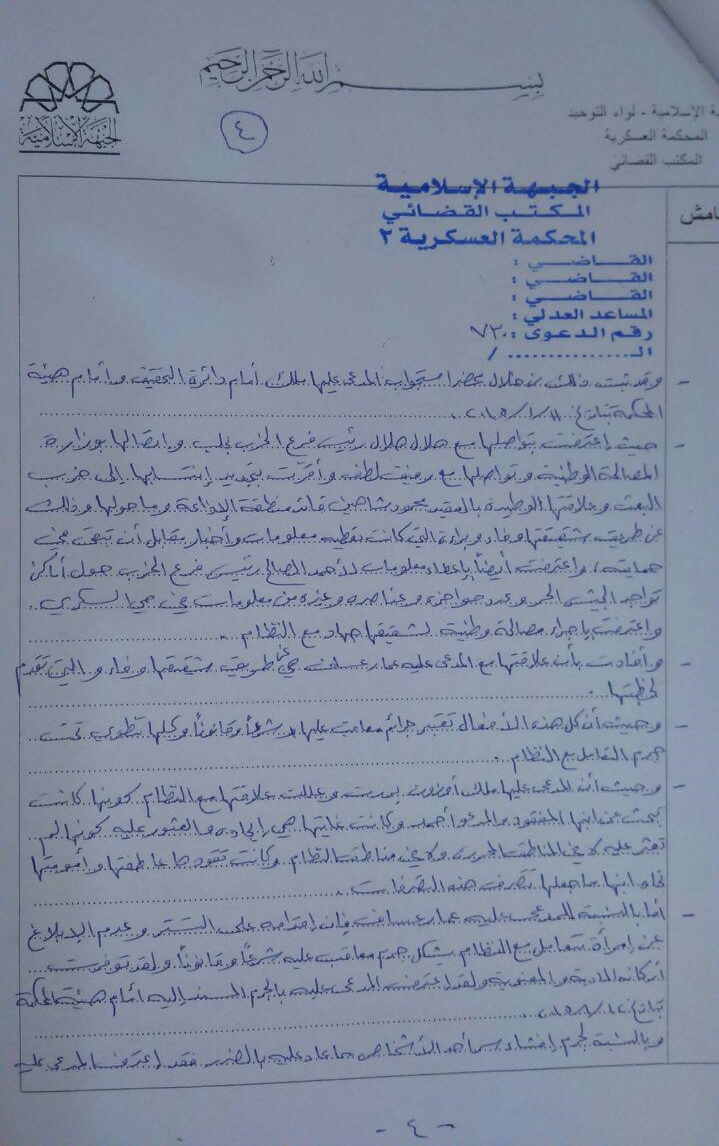 بسم الله الرحمن الرحيم
الجبهة الإسلامية
٤
ية الإسلامية - لواء التوحيد
المحكمة العسكرية
المكتب القضائي
امش
الجبهة الإسلامية
المكتب القضائي
المحكمة العسكرية ٢
القاضي :
القاضي :
القاضي :
المساعد العدلي :
رقم الدعوى : ٧٢٠
الـ ............... /
- وقد ثبت ذلك من خلال محضر استجواب المدعى عليها ملك أمام دائرة التحقيق وأمام هيئة
المحكمة بتاريخ
- حيث اعترفت بتواصلها مع هلال هلال رئيس فرع الحزب بحلب واتصالها بوزارة
المصالحة الوطنية وتواصلها مع لطف وأقرت بتجديد إنتسابها إلى حزب
البعث وعلاقتها الوطيدة بالعقيد محمود شاهين قائد منطقة الإذاعة وما حولها وذلك
عن طريق شقيقتها وفاء التي كانت تعطيه معلومات وأخبار مقابل أن تبقى في
حمايته، واعترفت أيضاً بإعطاء معلومات لأحمد الصالح رئيس فرع الحزب حول أماكن
تواجد الجيش الحر وعدد حواجزه وعناصره وغيره من معلومات في حي السكري .
واعترفت بإجراء مصالحة وطنية لشقيقها جهاد مع النظام .
- وأفادت بأن علاقتها مع المدعى عليه عمار عساف هي عن طريق شقيقتها وفاء والتي تقدم
لخطبتها .
- وحيث أن كل هذه الأفعال تعتبر جرائم معاقب عليها شرعاً وقانوناً وكلها تنطوي تحت
جرم التعامل مع النظام .
- وحيث أن المدعى عليها ملك بررت وعللت علاقتها مع النظام كونها كانت
تبحث عن ابنها المفقود والمدعو أحمد وكانت غايتها هي إيجاده والعثور عليه كونها لم
تعثر عليه لا في المناطق المحررة ولا في مناطق النظام وكانت تقودها عاطفتها وأمومتها
تجاه ابنها ما جعلها تتصرف هذه التصرفات .
- أما بالنسبة للمدعى عليه عمار عساف فإن إقدامه على التستر وعدم الإبلاغ
عن إمرأة تتعامل مع النظام يشكل جرم معاقب عليه شرعاً وقانوناً ولقد توفرت
أركانه المادية والمعنوية ولقد اعترف المدعى عليه بالجرم المسند إليه أمام هيئة المحكمة
بتاريخ
وبالنسبة لجرم إفشاء سر أحد الأشخاص مما عاد عليه بالضرر فقد إعترف المدعى عليه
- ٤ -